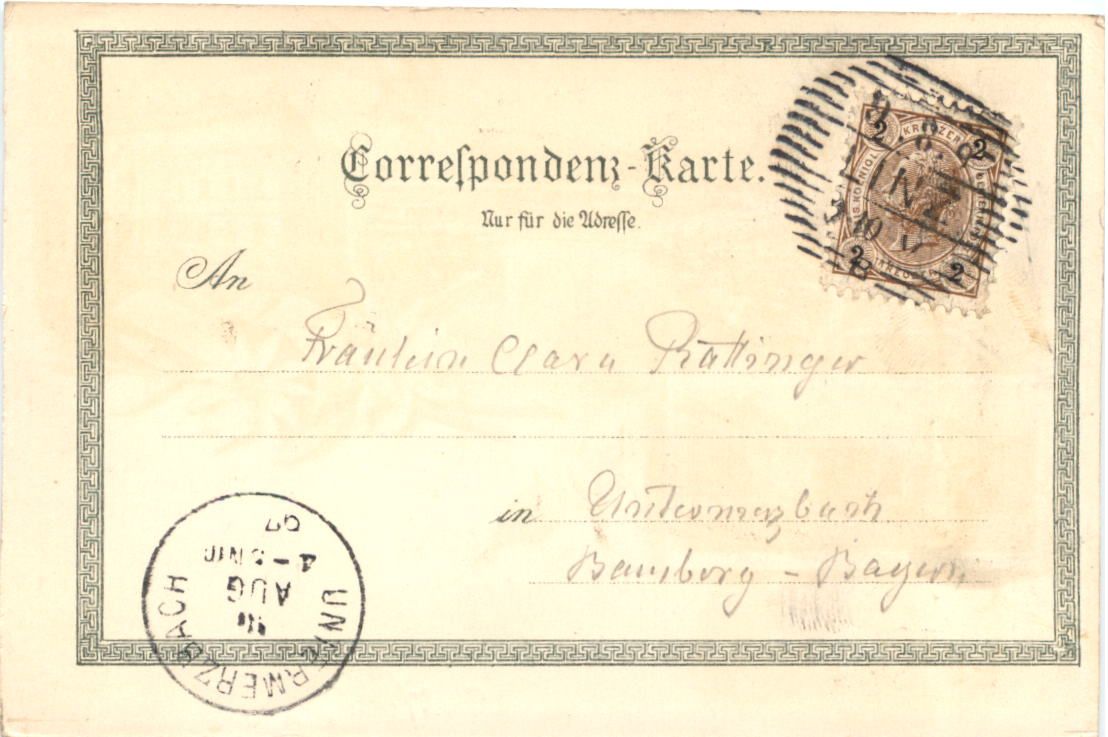 Correſpondenz-Karte.
Nur für die Adreſſe.
2 KREUZER 2
2 2
An
Fräulein Clara Rattinger
in Untermerzbach
Bamberg - Bayern
UNTERMERZBACH
AUG
97